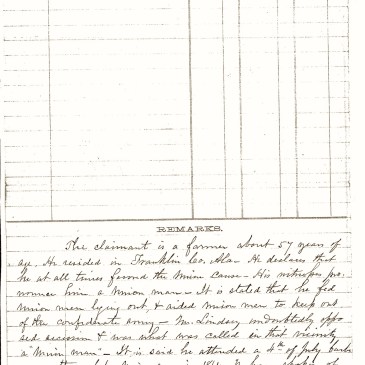 REMARKS.
The claimant is a farmer about 57 years of
age. He resided in Franklin Co. Ala. He declares that
he at all times favored the Union cause - His witnesses pro-
nounce him a Union man - It is stated that he fed
Union men lying out, & aided Union men to keep out
of the confederate army - Mr. Lindsey undoubtedly oppo
sed secession & was what was called in that vicinity
a "Union man" - It is said he attended a 4th of July